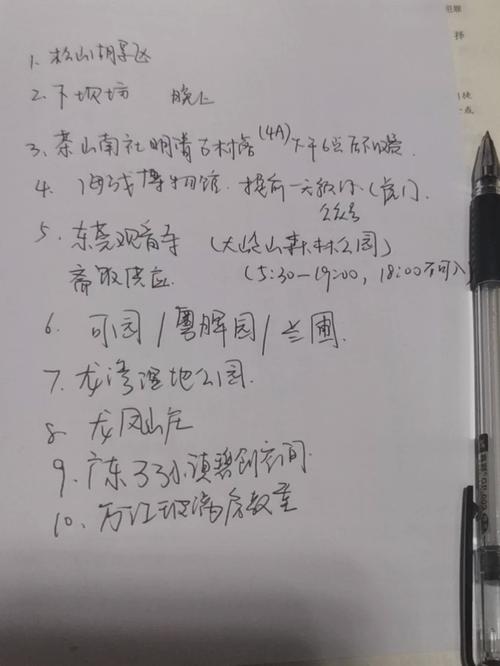 择
1. 松山湖景区
2. 下坝坊 晚上
3. 茶山南社明清古村落(4A)下午6点后不收费
4. 海战博物馆. 提前一天预约(虎门
公众号
5. 东莞观音寺 (大岭山森林公园)
斋饭供应 (5:30—19:00, 18:00不可入
6. 可园/粤晖园/兰圃.
7. 龙湾湿地公园.
8. 龙凤山庄
9. 广东33小镇碧创空间.
10. 万江玻璃房教堂